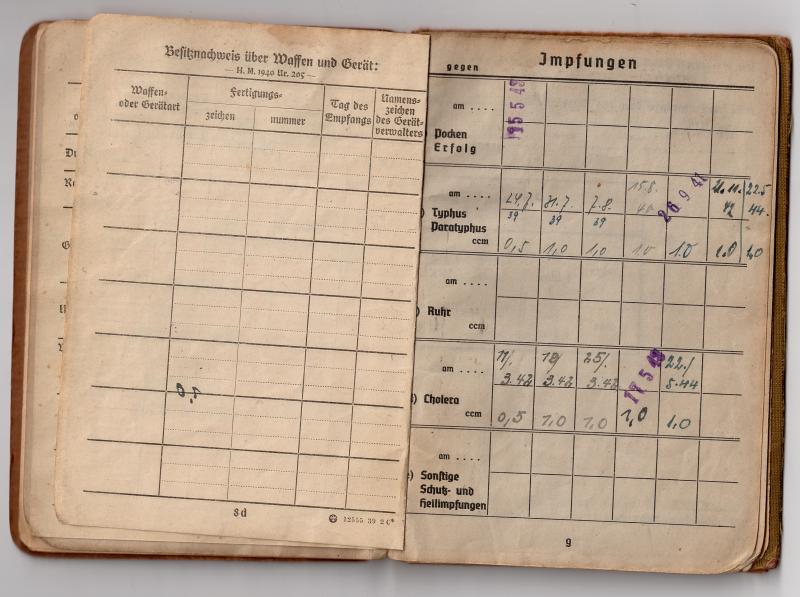 Besitznachweis über Waffen und Gerät:
— H. M. 1940 Nr. 205 —
Waffen-
oder Gerätart
Fertigungs-
zeichen
nummer
Tag des
Empfangs
Namens-
zeichen
des Gerät-
verwalters
1,0
8d
12555 39 2 C*
gegen
Impfungen
am ....
Pocken
Erfolg
am ....
24.7. 31.7. 7.8. 15.8. 26.9.41 22.5
39 39 39 44.
Typhus
Paratyphus
ccm
0,5 1,0 1,0 1.0 1.0 1.0 1,0
am ....
Ruhr
ccm
am ....
11/. 18/ 25/. 22./
3.42 3.42 3.42 5.44
) Cholera
ccm
0,5 1,0 1,0 1,0 1,0
am ....
) Sonstige
Schutz- und
Heilimpfungen
9